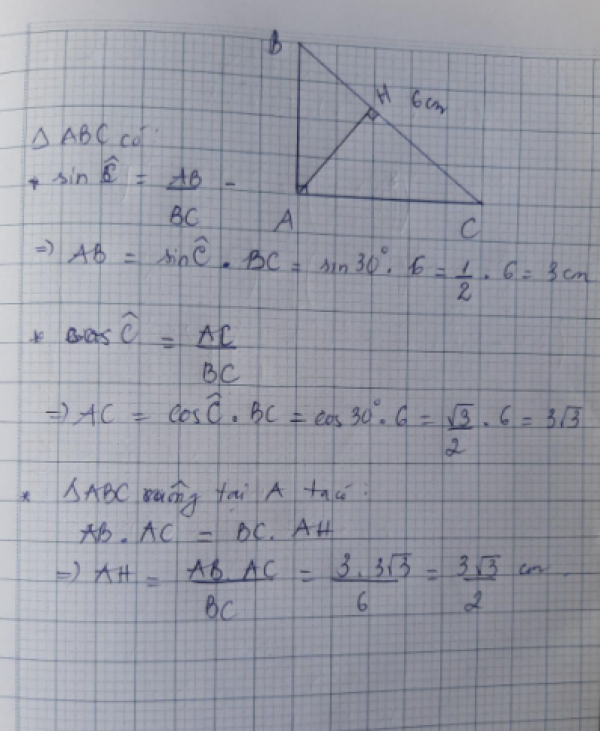 B
H 6cm
A
C
Δ ABC có:
* sin Ĉ = AB/BC
=> AB = sin Ĉ . BC = sin 30° . 6 = 1/2 . 6 = 3 cm
* cos Ĉ = AC/BC
=> AC = cos Ĉ . BC = cos 30° . 6 = √3/2 . 6 = 3√3
* ΔABC vuông tại A ta có:
AB . AC = BC . AH
=> AH = AB. AC/BC = 3. 3√3/6 = 3√3/2 cm